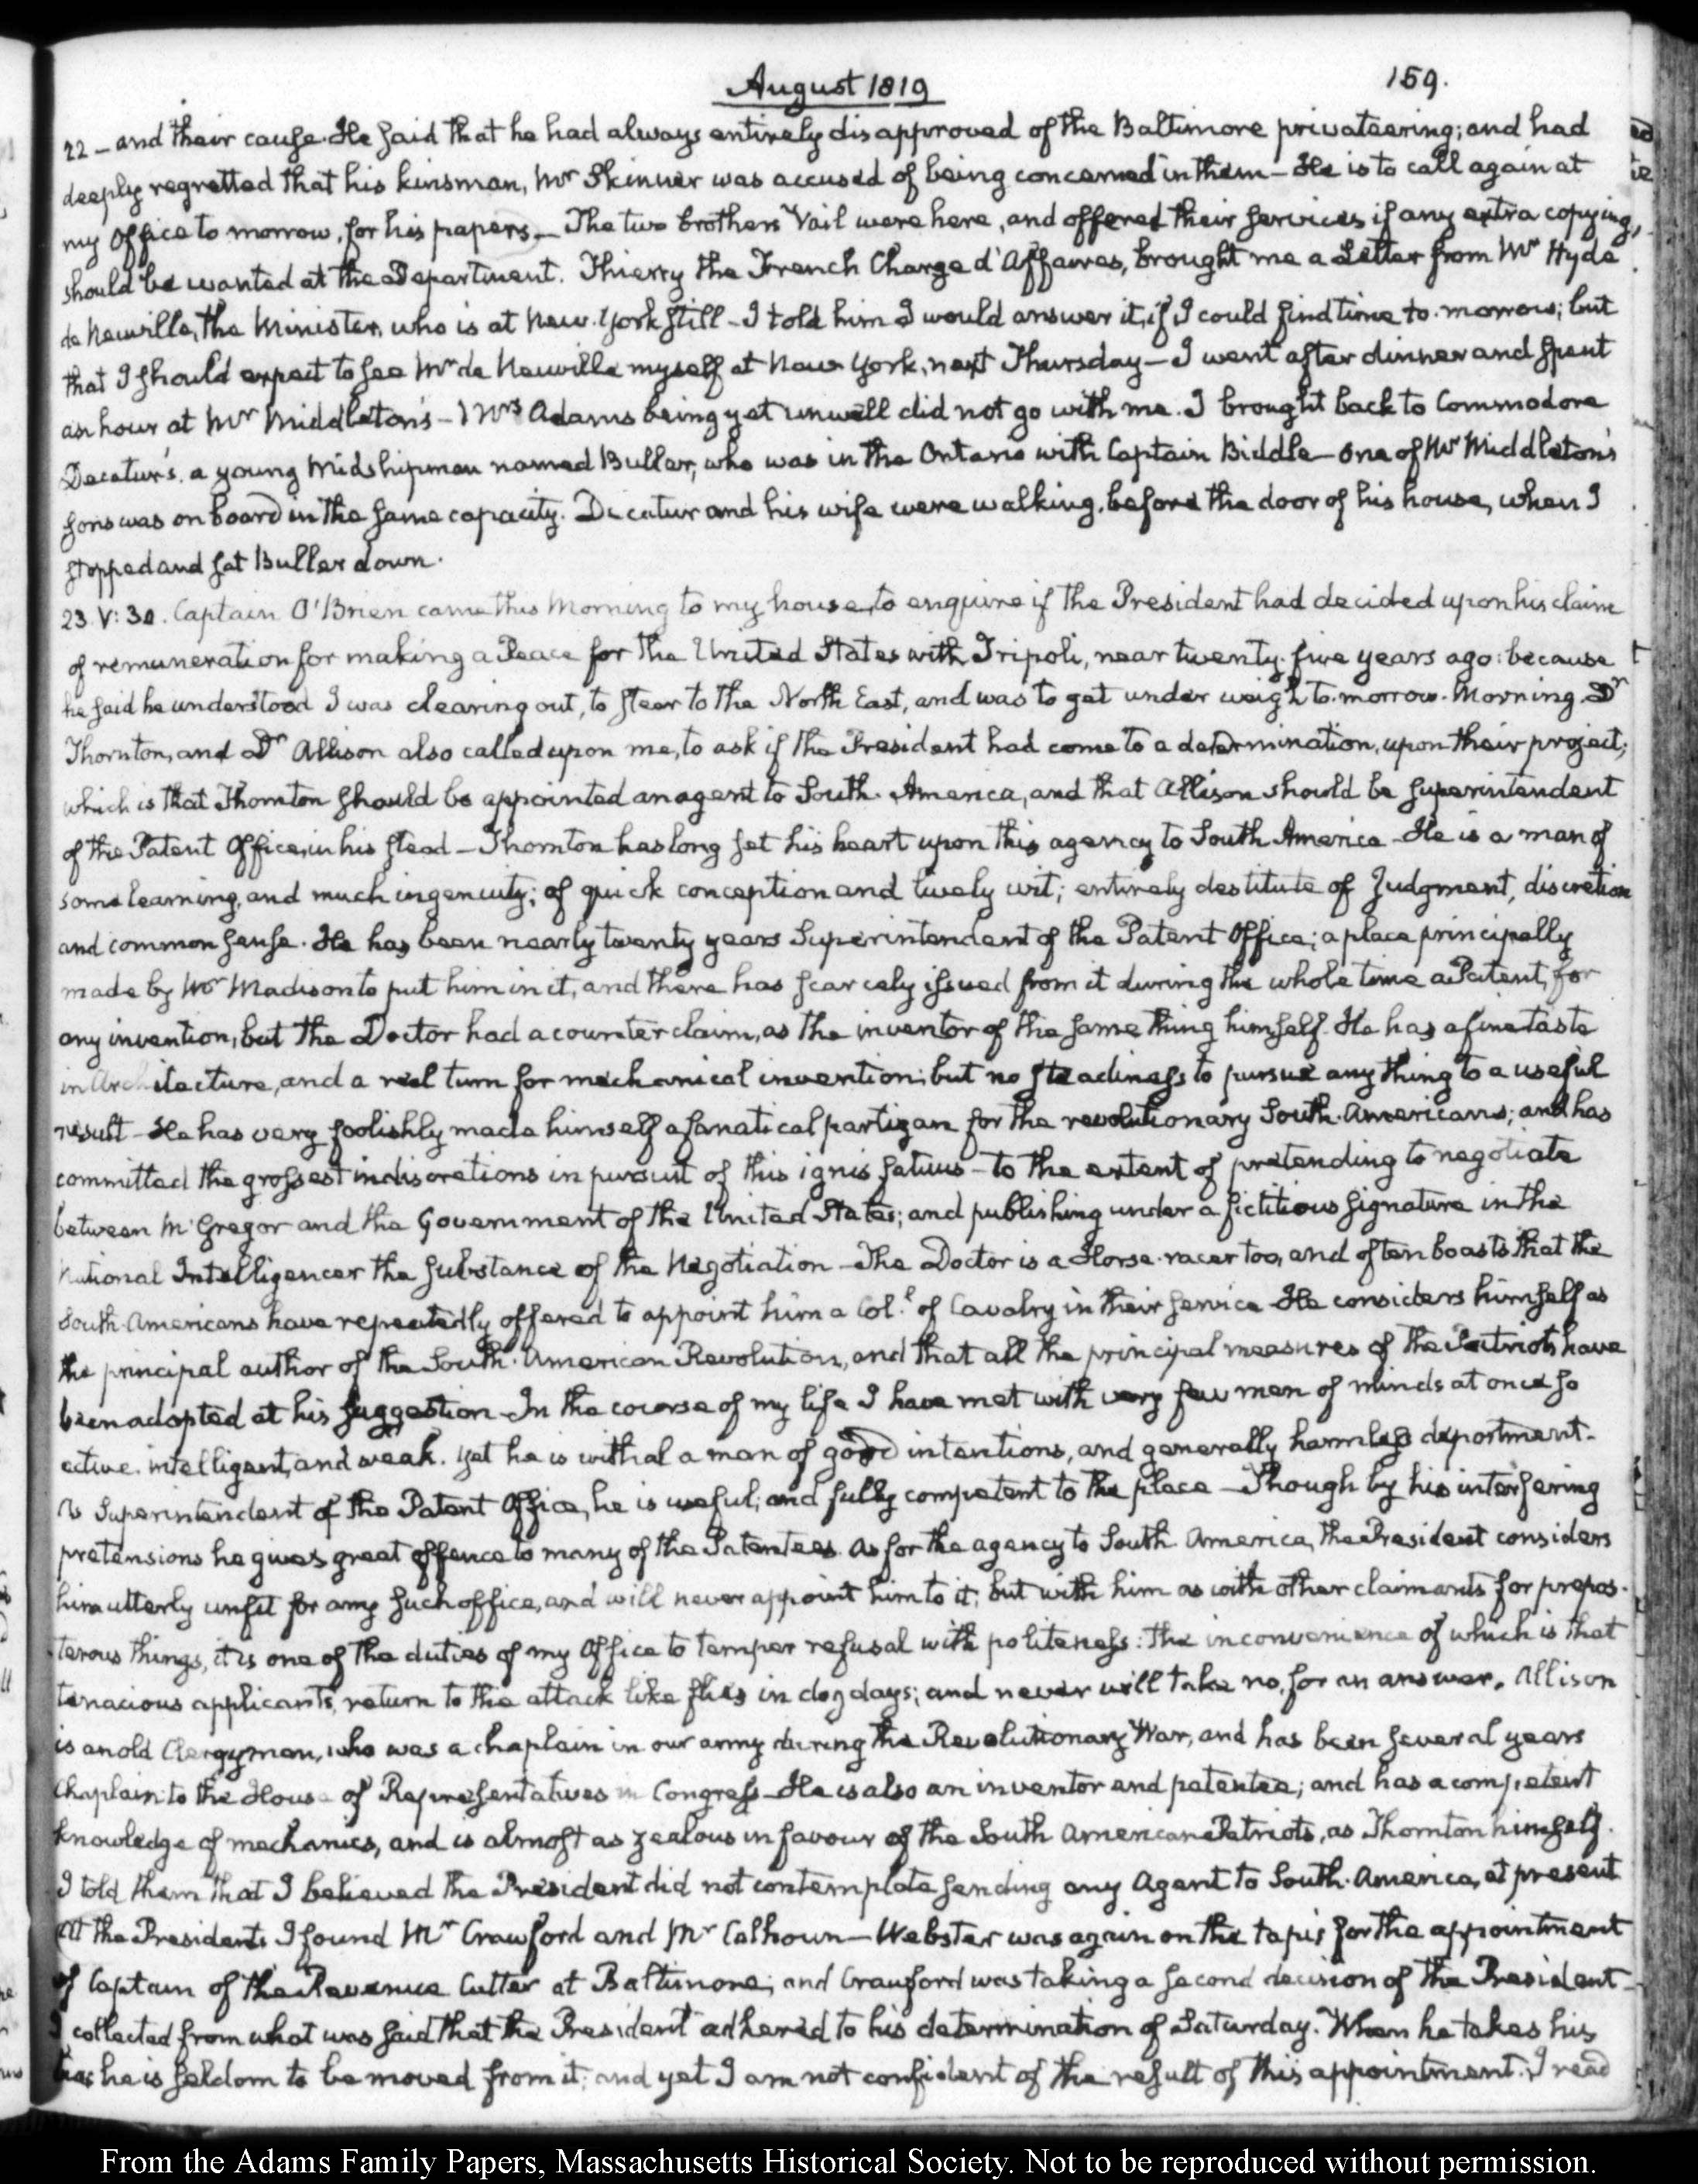 August 1819
159.
22 – and their cause. He said that he had always entirely disapproved of the Baltimore privateering; and had
deeply regretted that his kinsman, Mr Skinner was accused of being concerned in them – He is to call again at
my Office to morrow, for his papers – The two brothers Vail were here, and offered their services if any extra copying,
should be wanted at the Department. Thierry the French Charge d'Affaires, brought me a Letter from Mr Hyde
de Neuville, the Minister, who is at New York still – I told him I would answer it, if I could find time to morrow; but
that I should expect to see Mr de Neuville myself at New York, next Thursday – I went after dinner and spent
an hour at Mr Middleton's – Mrs Adams being yet unwell did not go with me. I brought back to Commodore
Decatur's, a young Midshipman named Buller, who was in the Ontario with Captain Biddle – one of Mr Middleton's
sons was on board in the same capacity. Decatur and his wife were walking, before the door of his house, when I
stopped and set Buller down.
23. V:30. Captain O'Brien came this Morning to my house, to enquire if the President had decided upon his claim
of remuneration for making a Peace for the United States with Tripoli, near twenty-five years ago: because
he said he understood I was clearing out, to steer to the North East, and was to get under weigh to-morrow Morning. Dr
Thornton, and Dr Allison also called upon me, to ask if the President had come to a determination, upon their project;
which is that Thornton should be appointed an agent to South-America, and that Allison should be Superintendent
of the Patent Office, in his stead – Thornton has long set his heart upon this agency to South America – He is a man of
some learning, and much ingenuity; of quick conception and lively wit; entirely destitute of Judgment, discretion
and common sense. He has been nearly twenty years Superintendent of the Patent Office; a place principally
made by Mr Madison to put him in it, and there has scarcely issued from it during the whole time a Patent, for
any invention, but the Doctor had a counter claim, as the inventor of the same thing himself. He has a fine taste
in Architecture, and a real turn for mechanical invention; but no steadiness to pursue any thing to a useful
result – He has very foolishly made himself a fanatical partizan for the revolutionary South-Americans; and has
committed the grossest indiscretions in pursuit of this ignis fatuus – to the extent of pretending to negotiate
between McGregor and the Government of the United States; and publishing under a fictitious signature in the
National Intelligencer the substance of the Negotiation – The Doctor is a Horse-racer too, and often boasts that the
South-Americans have repeatedly offered to appoint him a Col.l of Cavalry in their service – He considers himself as
the principal author of the South-American Revolution, and that all the principal measures of the Patriots have
been adopted at his suggestion – In the course of my life I have met with very few men of minds at once so
active, intelligent, and weak. Yet he is withal a man of good intentions, and generally harmless deportment.
As Superintendent of the Patent Office, he is useful; and fully competent to the place – Though by his interfering
pretensions he gives great offence to many of the Patentees. As for the agency to South America, the President considers
him utterly unfit for any such office, and will never appoint him to it; but with him as with other claimants for prepos-
terous things, it is one of the duties of my Office to temper refusal with politeness: the inconvenience of which is that
tenacious applicants, return to the attack like flies in dog days; and never will take no, for an answer. Allison
is an old Clergyman, who was a chaplain in our army during the Revolutionary War, and has been several years
Chaplain to the House of Representatives in Congress – He is also an inventor and patentee; and has a competent
knowledge of mechanics, and is almost as zealous in favour of the South American Patriots, as Thornton himself.
I told them that I believed the President did not contemplate sending any Agent to South-America, at present
At the President's I found Mr Crawford and Mr Calhoun – Webster was again on the tapis for the appointment
of Captain of the Revenue Cutter at Baltimore; and Crawford was taking a second decision of the President –
I collected from what was said that the President adhered to his determination of Saturday. When he takes his
bias he is seldom to be moved from it; and yet I am not confident of the result of this appointment. I read
From the Adams Family Papers, Massachusetts Historical Society. Not to be reproduced without permission.